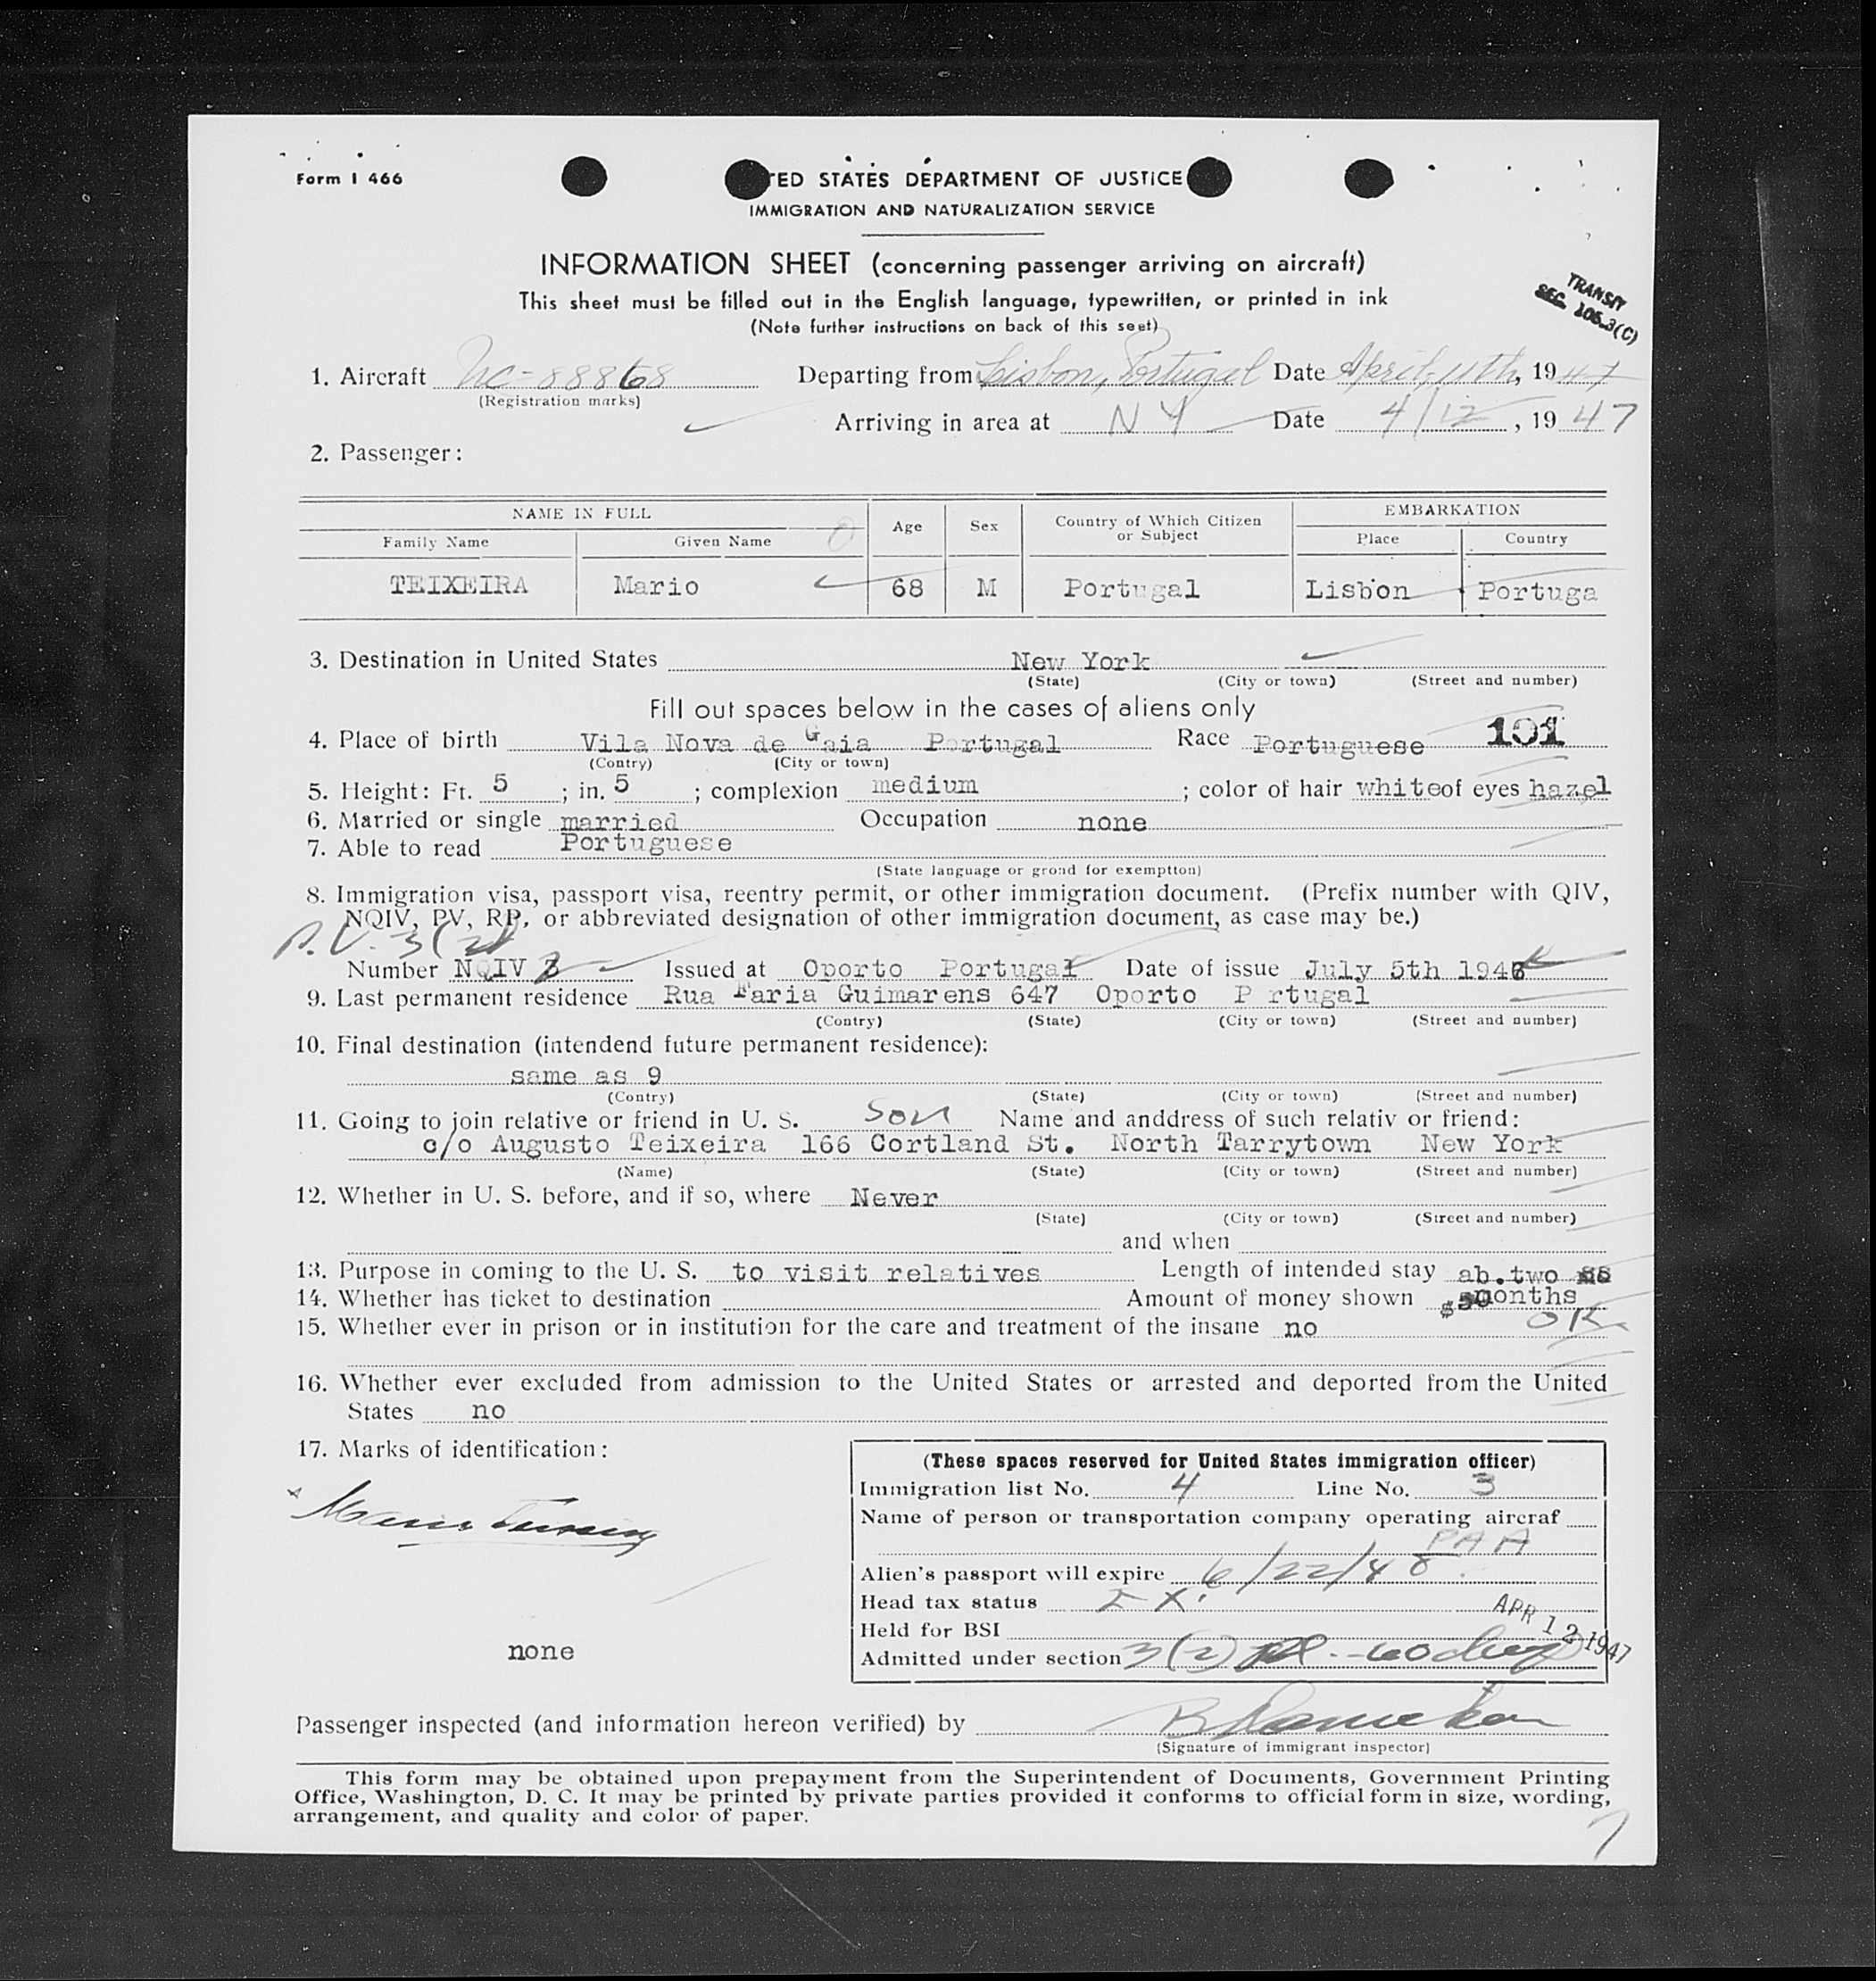 Form I 466
TED STATES DEPARTMENT OF JUSTICE
IMMIGRATION AND NATURALIZATION SERVICE
INFORMATION SHEET (concerning passenger arriving on aircraft)
This sheet must be filled out in the English language, typewritten, or printed in ink
(Note further instructions on back of this seet)
TRANSIT
SEC. 105.3(C)
1. Aircraft NC-88868 Departing from Lisbon, Portugal Date April 11th, 1947
(Registration marks)
Arriving in area at NY Date 4/12, 1947
2. Passenger:
NAME IN FULL Age Sex Country of Which Citizen or Subject EMBARKATION
Family Name Given Name Place Country
TEIXEIRA Mario 68 M Portugal Lisbon Portuga
3. Destination in United States New York
(State) (City or town) (Street and number)
Fill out spaces below in the cases of aliens only
4. Place of birth Vila Nova de Gaia Portugal Race Portuguese 101
(Contry) (City or town)
5. Height: Ft. 5 ; in. 5 ; complexion medium ; color of hair white of eyes hazel
6. Married or single married Occupation none
7. Able to read Portuguese
(State language or grond for exemption)
8. Immigration visa, passport visa, reentry permit, or other immigration document. (Prefix number with QIV,
NQIV, PV, RP, or abbreviated designation of other immigration document, as case may be.)
P.V. 3(2)
Number NQIV 3 Issued at Oporto Portugal Date of issue July 5th 1946
9. Last permanent residence Rua Faria Guimarens 647 Oporto P rtugal
(Contry) (State) (City or town) (Street and number)
10. Final destination (intendend future permanent residence):
same as 9
(Contry) (State) (City or town) (Street and number)
11. Going to join relative or friend in U. S. Son Name and anddress of such relativ or friend:
c/o Augusto Teixeira 166 Cortland St. North Tarrytown New York
(Name) (State) (City or town) (Street and number)
12. Whether in U. S. before, and if so, where Never
(State) (City or town) (Street and number)
and when
13. Purpose in coming to the U. S. to visit relatives Length of intended stay ab.two
14. Whether has ticket to destination Amount of money shown $50 months
15. Whether ever in prison or in institution for the care and treatment of the insane no OK
16. Whether ever excluded from admission to the United States or arrested and deported from the United
States no
17. Marks of identification:
none
(These spaces reserved for United States immigration officer)
Immigration list No. 4 Line No. 3
Name of person or transportation company operating aircraf
PAA
Alien's passport will expire 6/22/48
Head tax status EX.
APR 12 1947
Held for BSI
Admitted under section 3(2) 60 days
Passenger inspected (and information hereon verified) by
(Signature of immigrant inspector)
This form may be obtained upon prepayment from the Superintendent of Documents, Government Printing
Office, Washington, D. C. It may be printed by private parties provided it conforms to official form in size, wording,
arrangement, and quality and color of paper.